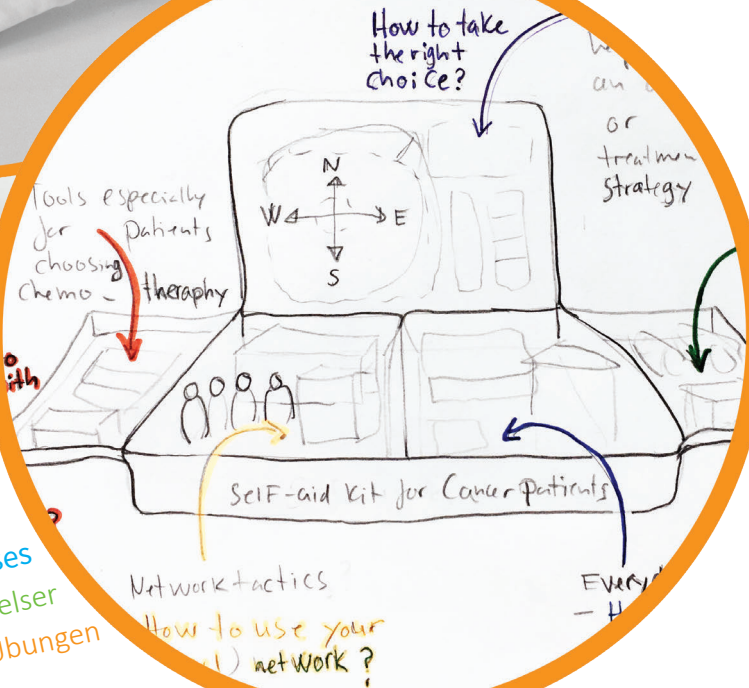 How to take
the right
choice?
an
or
treatmen
strategy
N
W E
S
Tools especially
for patients
choosing
chemo- theraphy
ith
SelF-aid Kit for Cancer patients
Network tactics
How to use your
network?
Every
- H
ses
elser
Übungen